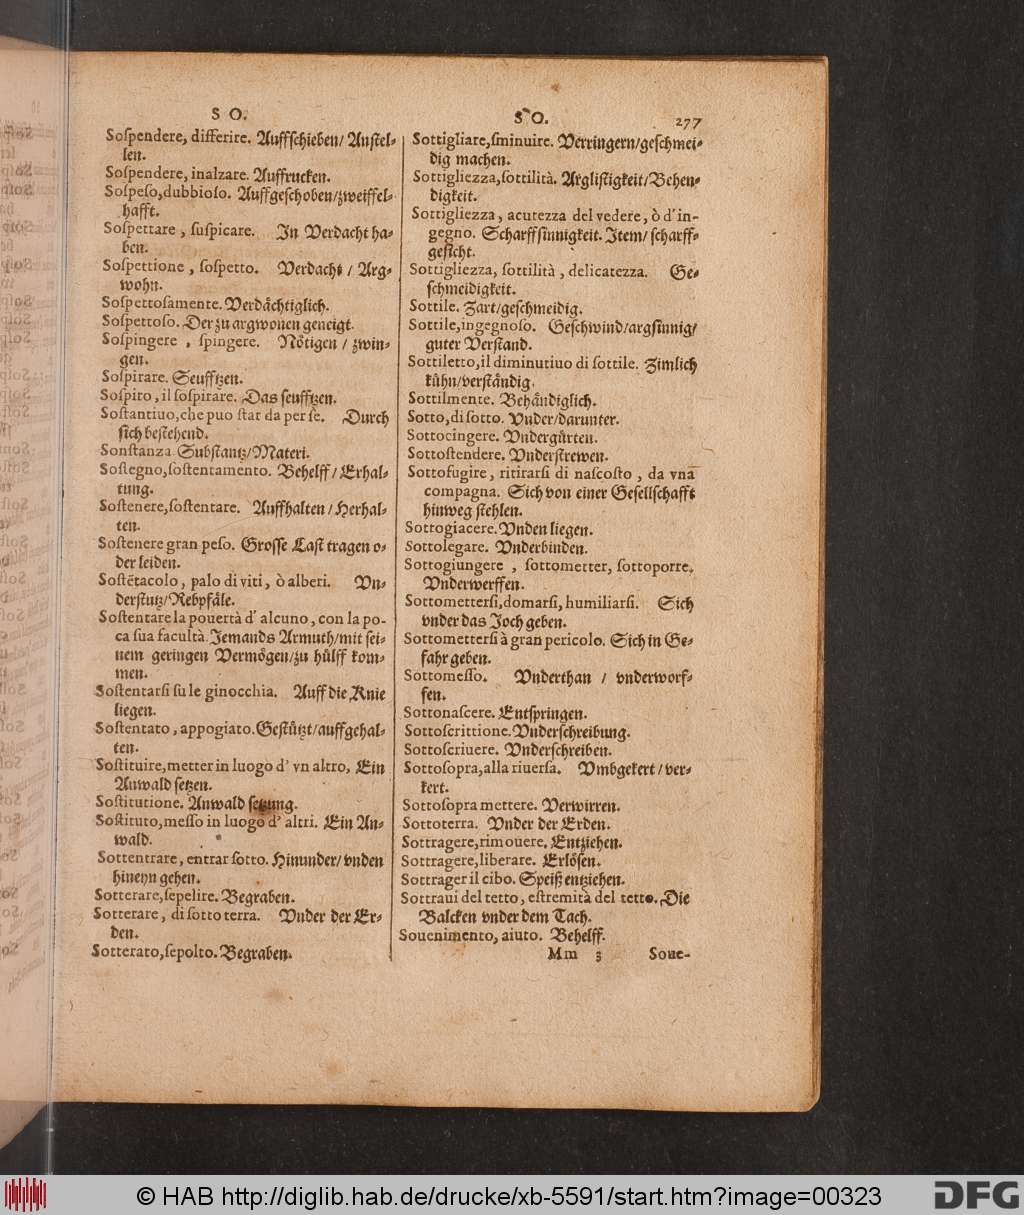 S O.
Soſpendere, differire. Auffſchieben/ Anſtel-
len.
Soſpendere, inalzare. Auffrucken.
Soſpeſo, dubbioſo. Auffgeſchoben/zweiffel-
hafft.
Soſpettare, ſuſpicare. In Verdacht ha-
ben.
Soſpettione, ſoſpetto. Verdacht / Arg-
wohn.
Soſpettoſamente. Verdächtiglich.
Soſpettoſo. Der zu argwonen geneigt.
Soſpingere, ſpingere. Nötigen / zwin-
gen.
Soſpirare. Seufftzen.
Soſpiro, il ſoſpirare. Das ſeufftzen.
Soſtantiuo, che puo ſtar da per ſe. Durch
ſich beſtehend.
Sonſtanza. Subſtantz/Materi.
Soſtegno, ſoſtentamento. Behelff / Erhal-
tung.
Soſtenere, ſoſtentare. Auffhalten / Herhal-
ten.
Soſtenere gran peſo. Groſſe Laſt tragen o-
der leiden.
Soſtētacolo, palo di viti, ò alberi. Vn-
derſtutz/Rebpfäle.
Soſtentare la pouertà d' alcuno, con la po-
ca ſua facultà. Jemands Armuth/mit ſei-
nem geringen Vermögen/zu hülff kom-
men.
Soſtentarſi ſu le ginocchia. Auff die Knie
liegen.
Soſtentato, appogiato. Geſtützt/auffgehal-
ten.
Soſtituire, metter in luogo d' vn altro, Ein
Anwald ſetzen.
Soſtitutione. Anwald ſetzung.
Soſtituto, meſſo in luogo d' altri. Ein An-
wald.
Sottentrare, entrar ſotto. Hinunder/ vnden
hineyn gehen.
Sotterare, ſepelire. Begraben.
Sotterare, di ſotto terra. Vnder der Er-
den.
Sotterato, ſepolto. Begraben.
S O. 277
Sottigliare, ſminuire. Verringern/geſchmei-
dig machen.
Sottigliezza, ſottilità. Argliſtigkeit/Behen-
digkeit.
Sottigliezza, acutezza del vedere, ò d'in-
gegno. Scharffſinnigkeit. Item/ ſcharff-
geſicht.
Sottigliezza, ſottilità, delicatezza. Ge-
ſchmeidigkeit.
Sottile. Zart/geſchmeidig.
Sottile, ingegnoſo. Geſchwind/argſinnig/
guter Verſtand.
Sottiletto, il diminutiuo di ſottile. Zimlich
kühn/verſtändig.
Sottilmente. Behändiglich.
Sotto, di ſotto. Vnder/darunter.
Sottocingere. Vndergürten.
Sottoſtendere. Vnderſtrewen.
Sottofugire, ritirarſi di naſcoſto, da vna
compagna. Sich von einer Geſellſchafft
hinweg ſtehlen.
Sottogiacere. Vnden liegen.
Sottolegare. Vnderbinden.
Sottogiungere, ſottometter, ſottoporre.
Vnderwerffen.
Sottometterſi, domarſi, humiliarſi. Sich
vnder das Joch geben.
Sottometterſi à gran pericolo. Sich in Ge-
fahr geben.
Sottomeſſo. Vnderthan / vnderworf-
fen.
Sottonaſcere. Entſpringen.
Sottoſcrittione. Vnderſchreibung.
Sottoſcriuere. Vnderſchreiben.
Sottoſopra, alla riuerſa. Vmbgekert / ver-
kert.
Sottoſopra mettere. Verwirren.
Sottoterra. Vnder der Erden.
Sottragere, rimouere. Entziehen.
Sottragere, liberare. Erlöſen.
Sottrager il cibo. Speiß entziehen.
Sottraui del tetto, eſtremità del tetto. Die
Balcken vnder dem Tach.
Souenimento, aiuto. Behelff.
Mm 3 Soue-
© HAB http://diglib.hab.de/drucke/xb-5591/start.htm?image=00323
DFG